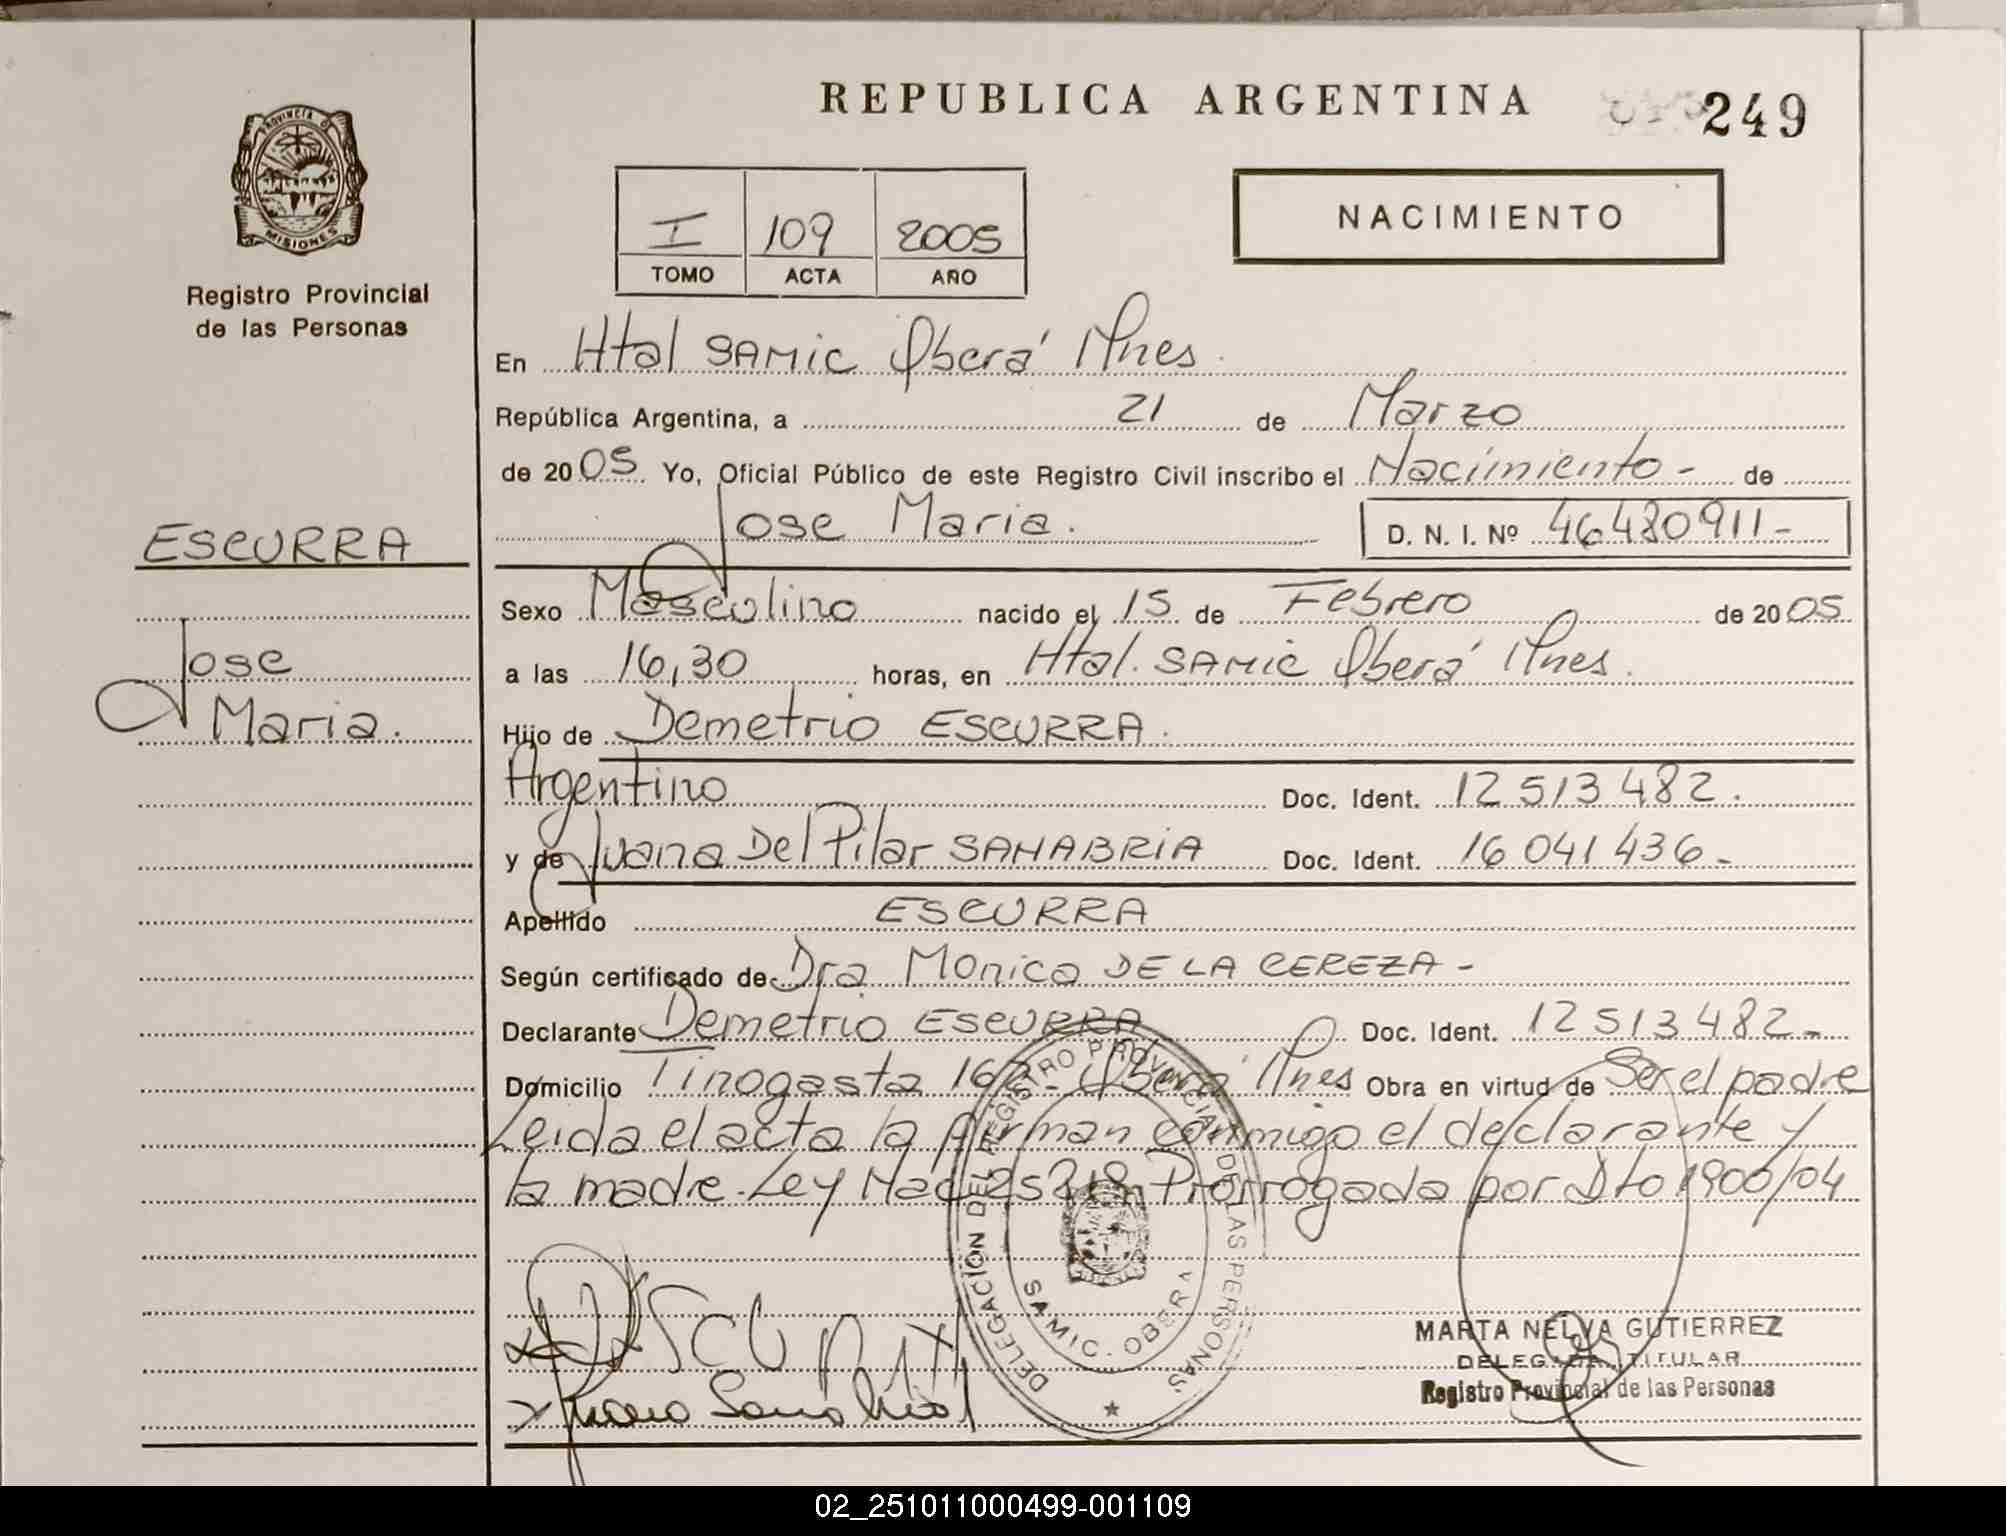 REPUBLICA ARGENTINA
249
PROVINCIA D
MISIONES
Registro Provincial
de las Personas
I 109 2005
TOMO ACTA AÑO
NACIMIENTO
En Htal SAMIC Oberá Mnes.
República Argentina, a 21 de Marzo
de 2005. Yo, Oficial Público de este Registro Civil inscribo el Nacimiento - de
Jose Maria. D. N. I. Nº 46480911-
ESCURRA
Jose
Maria.
Sexo Masculino nacido el 15 de Febrero de 2005
a las 16,30 horas, en Htal. SAMIC Oberá Mnes.
Hijo de Demetrio ESCURRA.
Argentino Doc. Ident. 12 513 482.
y de Juana Del Pilar SANABRIA Doc. Ident. 16 041 436-
Apellido ESCURRA
Según certificado de Dra Monica DE LA CEREZA -
Declarante Demetrio ESCURRA Doc. Ident. 12 513 482-
Domicilio Tinogasta 162 - Oberá Mnes Obra en virtud de Ser el padre
Leida el acta la firman conmigo el declarante y
la madre. Ley Nac 25819 Prorrogada por Dto 1900/04
DELEGACIÓN DEL REGISTRO PROVINCIAL DE LAS PERSONAS
SAMIC. OBERA
Juana Sanabria
MARTA NELVA GUTIERREZ
DELEGADA TITULAR
Registro Provincial de las Personas
02_251011000499-001109